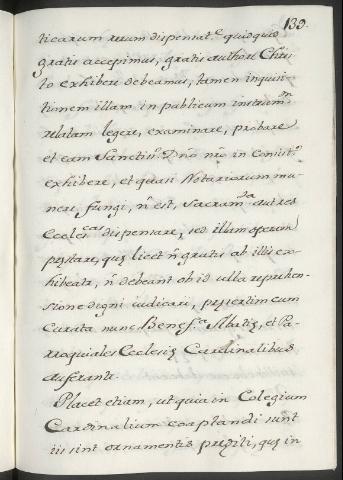 139.
ticarum rerum dispensat.e quidquid
gratis accepimus, gratis authori Chris
to exhibere debeamus, tamen inquisi
tionem illam in publicum instrum.m
relatam legere, examinare, probare
et eam Sanctiss.o Dño nro in Consist.o
exhibere, et quasi Notariorum mu-
nere fungi, ñ est, Sacram.ta aut res
Eccles.cas dispensare, sed illam operam
pręstare, quę licet ñ gratis ab illis ex-
hibeatr, ñ debeant ob id ulla reprehen-
sione digni iudicari, pręsertim cum
Curata nunc Benef.ca Abatię, et Pa-
rroquiales Ecclesię Cardinalibus
auferantr.
Placet etiam, ut quia in Collegium
Cardinalium cooptandi sunt
iis sint ornamentis pręditi, quę in